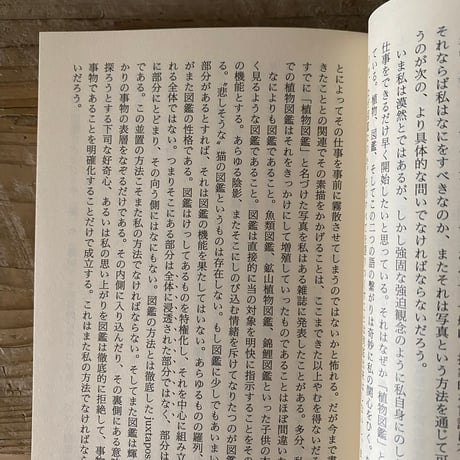 それならば私はなにをすべきなのか、またそれは写真という方法を通じて可
うのが次の、より具体的な問いでなければならないだろう。
いま私は漠然とではあるが、しかし強固な強迫観念のように私自身にのし
仕事をできるだけ早く開始したいと思っている。それはなぜか「植物図鑑」と
ている。植物、図鑑、そしてこの二つの語の繋がりは奇妙に私の関心をひく。
とによってその仕事を事前に霧散させてしまうのではないかと怖れる。だが今まで書
きたこととの関連でその素描をかかげることは、ここまできた以上やむを得ないだろ
すでに「植物図鑑」と名づけた写真を私はある雑誌に発表したことがある。多分、私
での植物図鑑はそれをきっかけにして増殖していったものであることはほぼ間違い
なによりも図鑑であること。魚類図鑑、鉱山植物図鑑、錦鯉図鑑といった子供の
く見るような図鑑であること。図鑑は直接的に当の対象を明快に指示すること
の機能とする。あらゆる陰影、またそこにしのび込む情緒を斥けてなりたつのが図鑑
る。“悲しそうな”猫の図鑑というものは存在しない。もし図鑑に少しでもあいま
部分があるとすれば、それは図鑑の機能を果たしてはいない。あらゆるものの羅列、
がまた図鑑の性格である。図鑑はけっしてあるものを特権化し、それを中心に組み立
れる全体ではない。つまりそこにある部分は全体に浸透された部分ではなく、部分
に部分にとどまり、その向う側にはなにもない。図鑑の方法とは徹底したjuxtapos
である。この並置の方法こそまた私の方法でなければならない。そしてまた図鑑は輝
かりの事物の表層をなぞるだけである。その内側に入り込んだり、その裏側にある意
探ろうとする下司な好奇心、あるいは私の思い上がりを図鑑は徹底的に拒絶して、事物
事物であることを明確化することだけで成立する。これはまた私の方法でなければなら
いだろう。